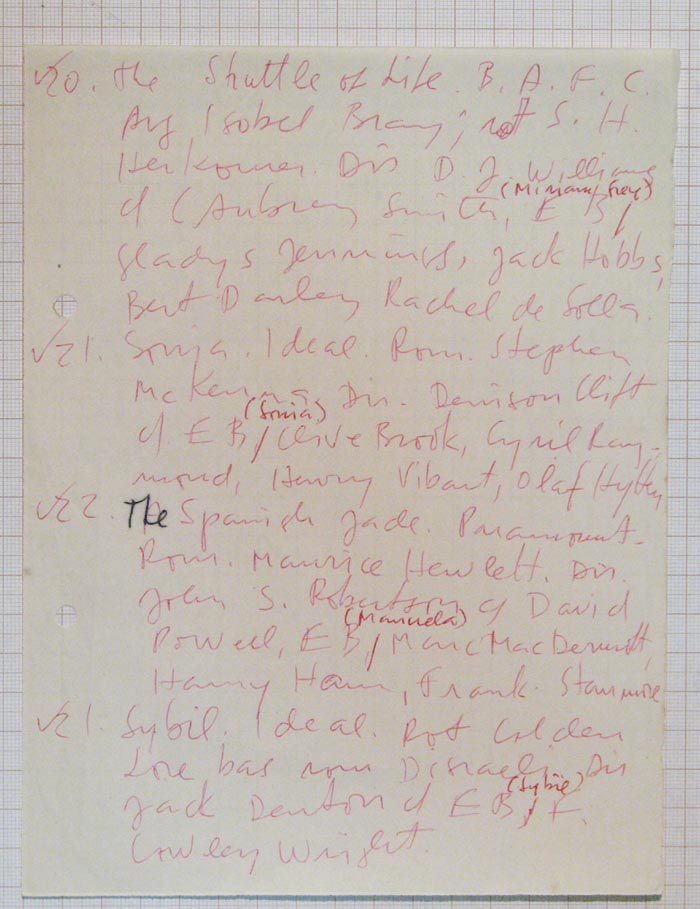 √20. The Shuttle of Life. B. A. F. C.
Isobel Bray; S. H.
Herkomer. Dir D. J. Williams
(Miriam Grey)
cf C Aubrey Smith, E B/
Gladys Jennings, Jack Hobbs,
Bert Darley Rachel de Solla.
√21. Sonia. Ideal. Rom. Stephen
McKenna. Dir. Denison Clift
(Sonia)
cf E B/ Clive Brook, Cyril Ray-
mond, Henry Vibart, Olaf Hytten
√22. The Spanish Jade. Paramount.
Rom. Maurice Hewlett. Dir.
John S. Robertson cf David
(Manuela)
Powell, E B/ Marc MacDermott,
Harry Ham, Frank Stanmore
√21. Sybil. Ideal. Rot Colden
Lore bas rom Disraeli. Dir
(Sybil)
Jack Denton cf E B/ F.
Cowley Wright.